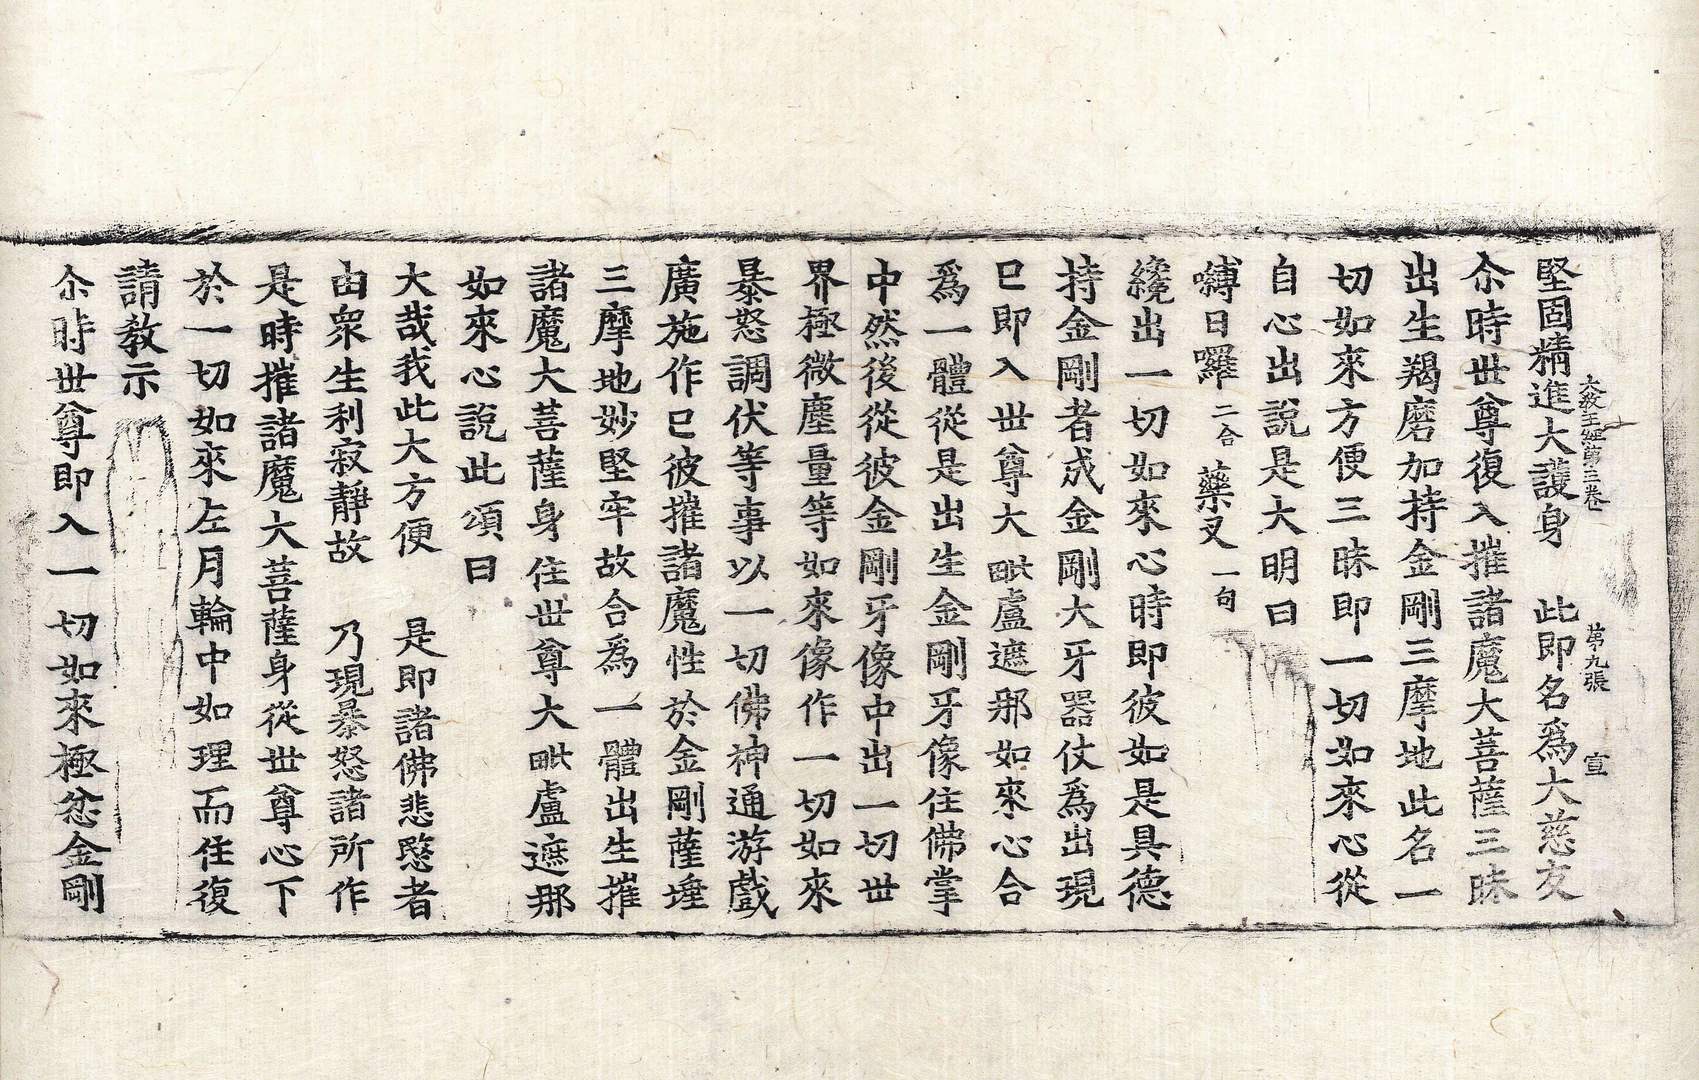 大教王經第三卷 第九張 宣
堅固精進大護身 此即名爲大慈友
尒時世尊復入摧諸魔大菩薩三昧
出生羯磨加持金剛三摩地此名一
切如來方便三昧即一切如來心從
自心出說是大明曰
嚩日囉二合藥叉一句
纔出一切如來心時即彼如是具德
持金剛者成金剛大牙器仗爲出現
已即入世尊大毗盧遮那如來心合
爲一體從是出生金剛牙像住佛掌
中然後從彼金剛牙像中出一切世
界極微塵量等如來像作一切如來
暴怒調伏等事以一切佛神通游戲
廣施作已彼摧諸魔性於金剛薩埵
三摩地妙堅牢故合爲一體出生摧
諸魔大菩薩身住世尊大毗盧遮那
如來心說此頌曰
大哉我此大方便 是即諸佛悲愍者
由衆生利寂靜故 乃現暴怒諸所作
是時摧諸魔大菩薩身從世尊心下
於一切如來左月輪中如理而住復
請教示
尒時世尊即入一切如來極忿金剛